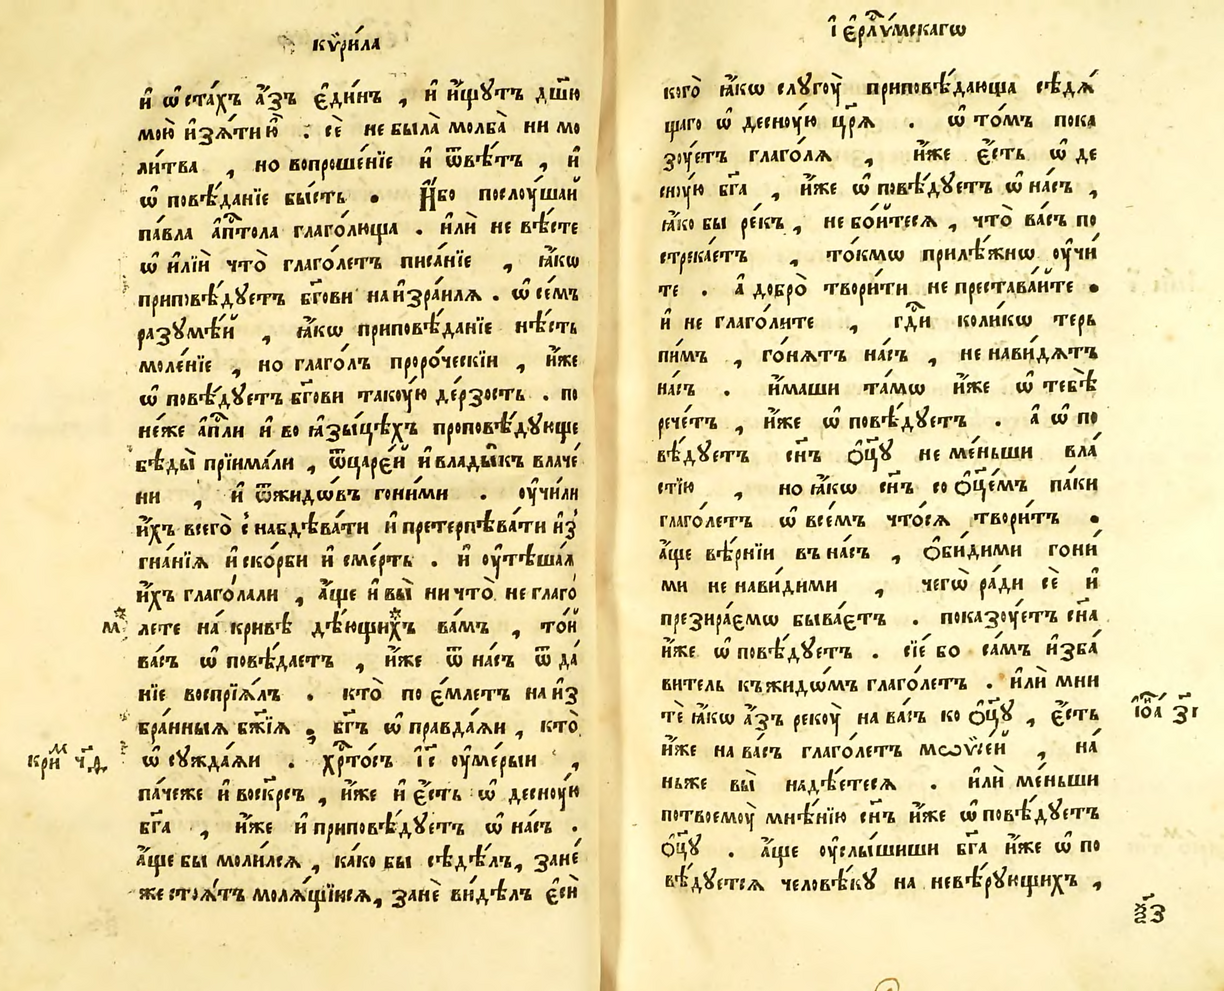 кѷри́ла
и҆ ѡ҆ста́хъ а҆́зъ є҆ди́нъ , и҆ и҆́щутъ дш҃ю
мою̀ и҆зѧ́ти ю҆̀ . сѐ не была̀ молба̀ ни мо
ли́тва , но вопроше́нїе и҆ ѿвѣ́тъ , и҆
ѡ҆ повѣ́данїе бы́сть . И҆́бо послоу́шай
па́вла а҆пⷭ҇тола глаго́люща . и҆лѝ не вѣ́сте
ѡ҆ и҆лїи́ что̀ глаго́летъ писа́нїе , ꙗ҆́кѡ
приповѣ́дуетъ бг҃ови на и҆зра́илѧ . ѡ҆ се́мъ
разумѣ́й , ꙗ҆́кѡ приповѣ́данїе нѣ́сть
моле́нїе , но глаго́лъ проро́ческїи , и҆́же
ѡ҆ повѣ́дуетъ бг҃ови такоу́ю де́рзость . по
не́же а҆пⷭ҇ли и҆ во ꙗ҆зы́цѣхъ проповѣ́дующе
бѣ́ды̀ прїима́ли , ѿцаре́й и҆ влады́къ влаче́
ни , и҆ ѿжидѡ́въ гони́ми . оу҆чи́ли
и҆́хъ всего̀ с̾ набдѣва́ти и҆ претерпѣва́ти и҆з̾
гна́нїѧ и҆ ско́рби и҆ сме́рть . и҆ оу҆тѣша́ѧ
и҆́хъ глаго́лали , а҆́ще и҆ вы̀ ничто̀ не глаго́
м҃ лете на́ кривѣ дѣ́ющихъ ва́мъ , то́й
ва́съ ѡ҆ повѣ́даетъ , и҆́же ѿ на́съ ѿ да́
нїе воспрїѧ́лъ . кто̀ по є҆́млетъ на и҆з
бра́нныѧ бж҃їѧ , бг҃ъ ѡ҆ правда́ѧи , кто̀
кри҃ м҃ ч҃д ѡ҆ сужда́ѧи . хрⷭ҇то́съ і҆с҃ оу҆ме́рыи ,
па́чеже и҆ воскр҃съ , и҆́же и҆ є҆́сть ѡ҆ десноу́ю
бг҃а , и҆́же и҆ приповѣ́дуетъ ѡ҆ на́съ .
а҆́ще бы моли́лсѧ , ка́ко бы сѣдѣ́лъ , зане́
же стоѧ́тъ молѧ́щїисѧ , занѐ ви́дѣлъ є҆сѝ
і҆ є҆рⷭ҇лѵ́мскагѡ
кого̀ ꙗ҆́кѡ слугоу̀ приповѣ́дающа сѣдѧ́
щаго ѡ҆ десноу́ю цр҃ѧ . ѡ҆ то́мъ пока
зоу́етъ глаго́лѧ , и҆́же є҆́сть ѡ҆ де
сноу́ю бг҃а , и҆́же ѡ҆ повѣ́дуетъ ѡ҆ на́съ ,
ꙗ҆́ко бы ре́къ , не бо́йтесѧ , что̀ ва́съ по
стрека́етъ , то́кмѡ прилѣ́жнѡ оу҆чи́
те . а҆ добро̀ твори́ти не престава́йте .
и҆ не глаго́лите , гдⷭ҇и коли́кѡ терь
пи́мъ , го́нѧтъ на́съ , не нави́дѧтъ
на́съ . и҆́маши та́мѡ и҆́же ѡ҆ тебѣ̀
рече́тъ , и҆́же ѡ҆ повѣ́дуетъ . а҆ ѡ҆ по
вѣ́дуетъ сн҃ъ ѻ҆ц҃у не ме́ньши вла́
стїю , но ꙗ҆́кѡ сн҃ъ со ѻ҆ц҃е́мъ па́ки
глаго́летъ ѡ҆ все́мъ что́сѧ твори́тъ .
а҆́ще вѣ́рнїи въ на́съ , ѻ҆би́дими гони́
ми не нави́дими , чегѡ̀ ра́ди сѐ и҆
презира́ємѡ быва́єтъ . показоу́етъ сн҃а
и҆́же ѡ҆ повѣ́дуетъ . сїе́ бо са́мъ и҆зба́
витель къжидѡ́мъ глаго́летъ . и҆лѝ мни
тѐ ꙗ҆́кѡ а҆́зъ рекоу̀ на ва́съ ко ѻ҆ц҃у , є҆́сть і҆ѡⷩ҇а з҃і
и҆́же на ва́съ глаго́летъ мѡѷсе́й , на́
ньже вы̀ надѣ́етесѧ . и҆лѝ ме́ньши
потвоемоу̀ мнѣ́нїю сн҃ъ и҆́же ѡ҆ повѣ́дуетъ
ѻ҆ц҃у . а҆́ще оу҆слы́шиши бг҃а и҆́же ѡ҆ по
вѣ́дуетсѧ человѣ́ку на невѣ́рующихъ ,
ѯ҃з